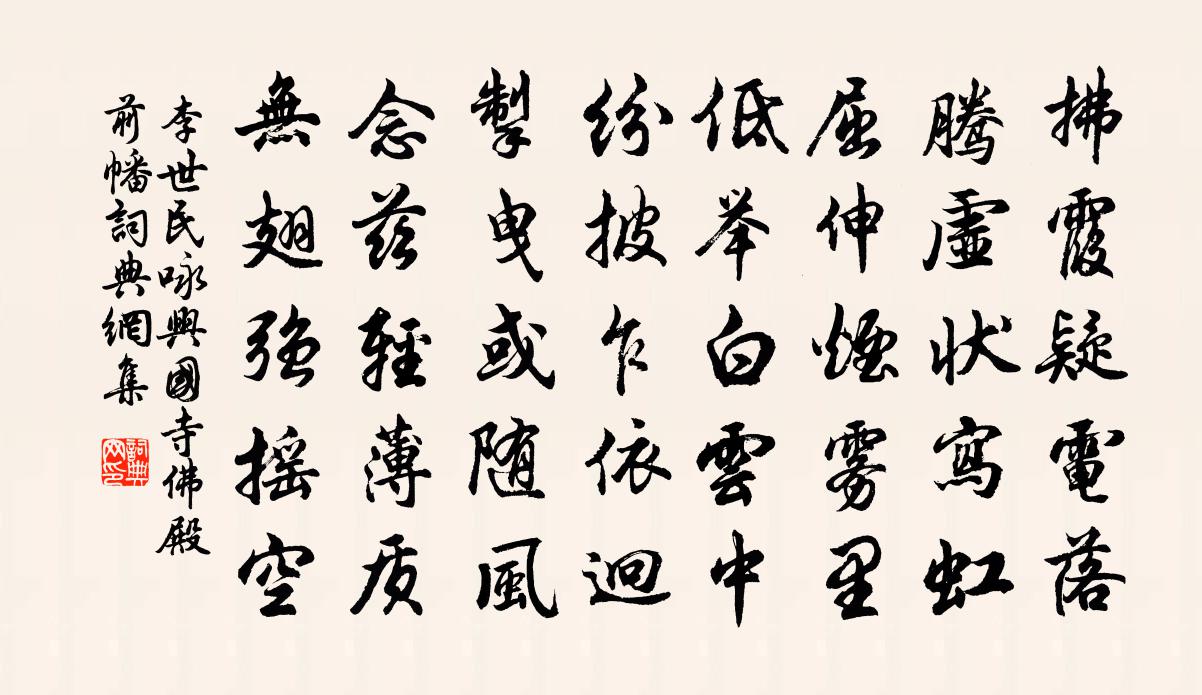 拂霞疑電落
騰虛狀寫虹
屈伸煙雾里
低举白雲中
紛披乍依迴
掣曳或随風
念兹輕薄质
無翅强摇空
李世民咏興國寺佛殿
前幡詞典網集
詞典